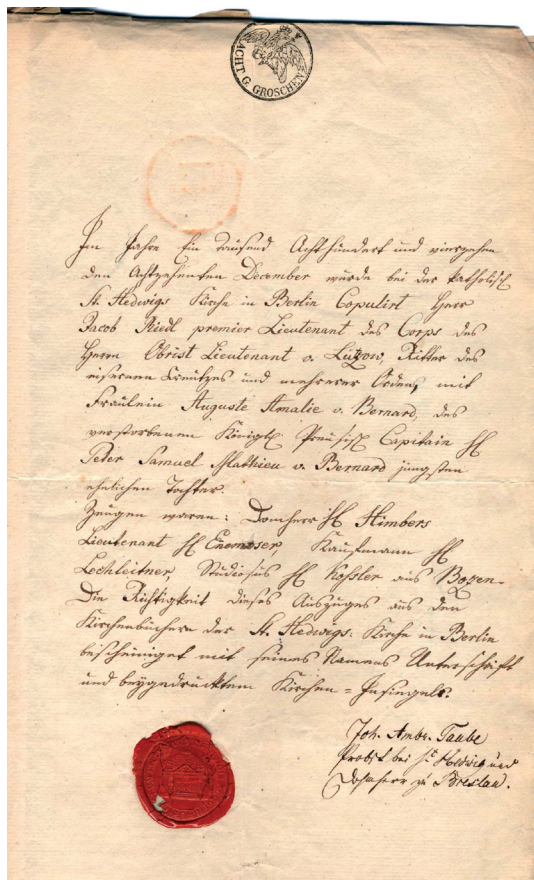 ACHT G. GROSCHEN
Im Jahre Ein Tausend Acht hundert und vierzehen
den Achtzehenten December wurde bei der katholisch
St. Hedwigs Kirche in Berlin Copulirt Herr
Jacob Riedl premier Lieutenant des Corps des
Herrn Obrist Lieutenant v. Lützow, Ritter des
eisernen Kreutzes und mehrerer Orden, mit
Fräulein Auguste Amalie v. Bernard, des
verstorbenen Königl. Preußisch Capitain H
Peter Samuel Mathieu v. Bernard jüngsten
ehelichen Tochter.
Zeugen waren: Domherr H Himbers
Lieutenant H Enemoser, Kaufmann H
Lechleitner, Studiosus H Kofsler aus Bozen.
Die Richtigkeit dieses Auszuges aus den
Kirchenbüchern der St. Hedwigs: Kirche in Berlin
bescheiniget mit seines Namens Unterschrift
und beygedrucktem Kirchen = Insiegel.
Joh. Ambr. Taube
Probst bei St Hedwig und
Domherr zu Breslau.